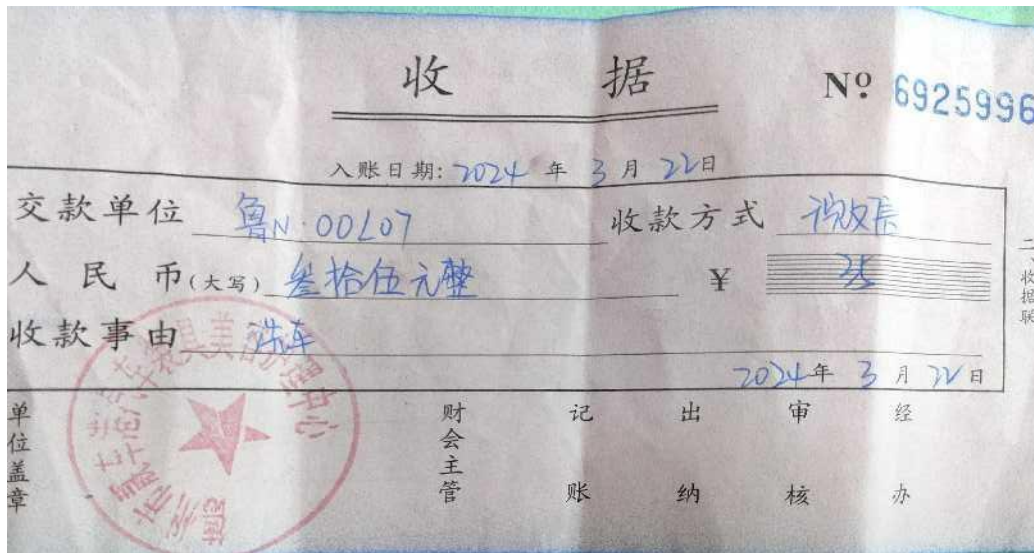 收 据 Nº 6925996
入账日期: 2024 年 3 月 22日
交款单位 鲁N·00L07 收款方式
人民币(大写) 叁拾伍元整 ¥ 35
收款事由 洗车
2024年 3 月 22日
单位盖章 财会主管 记账 出纳 审核 经办
收据联